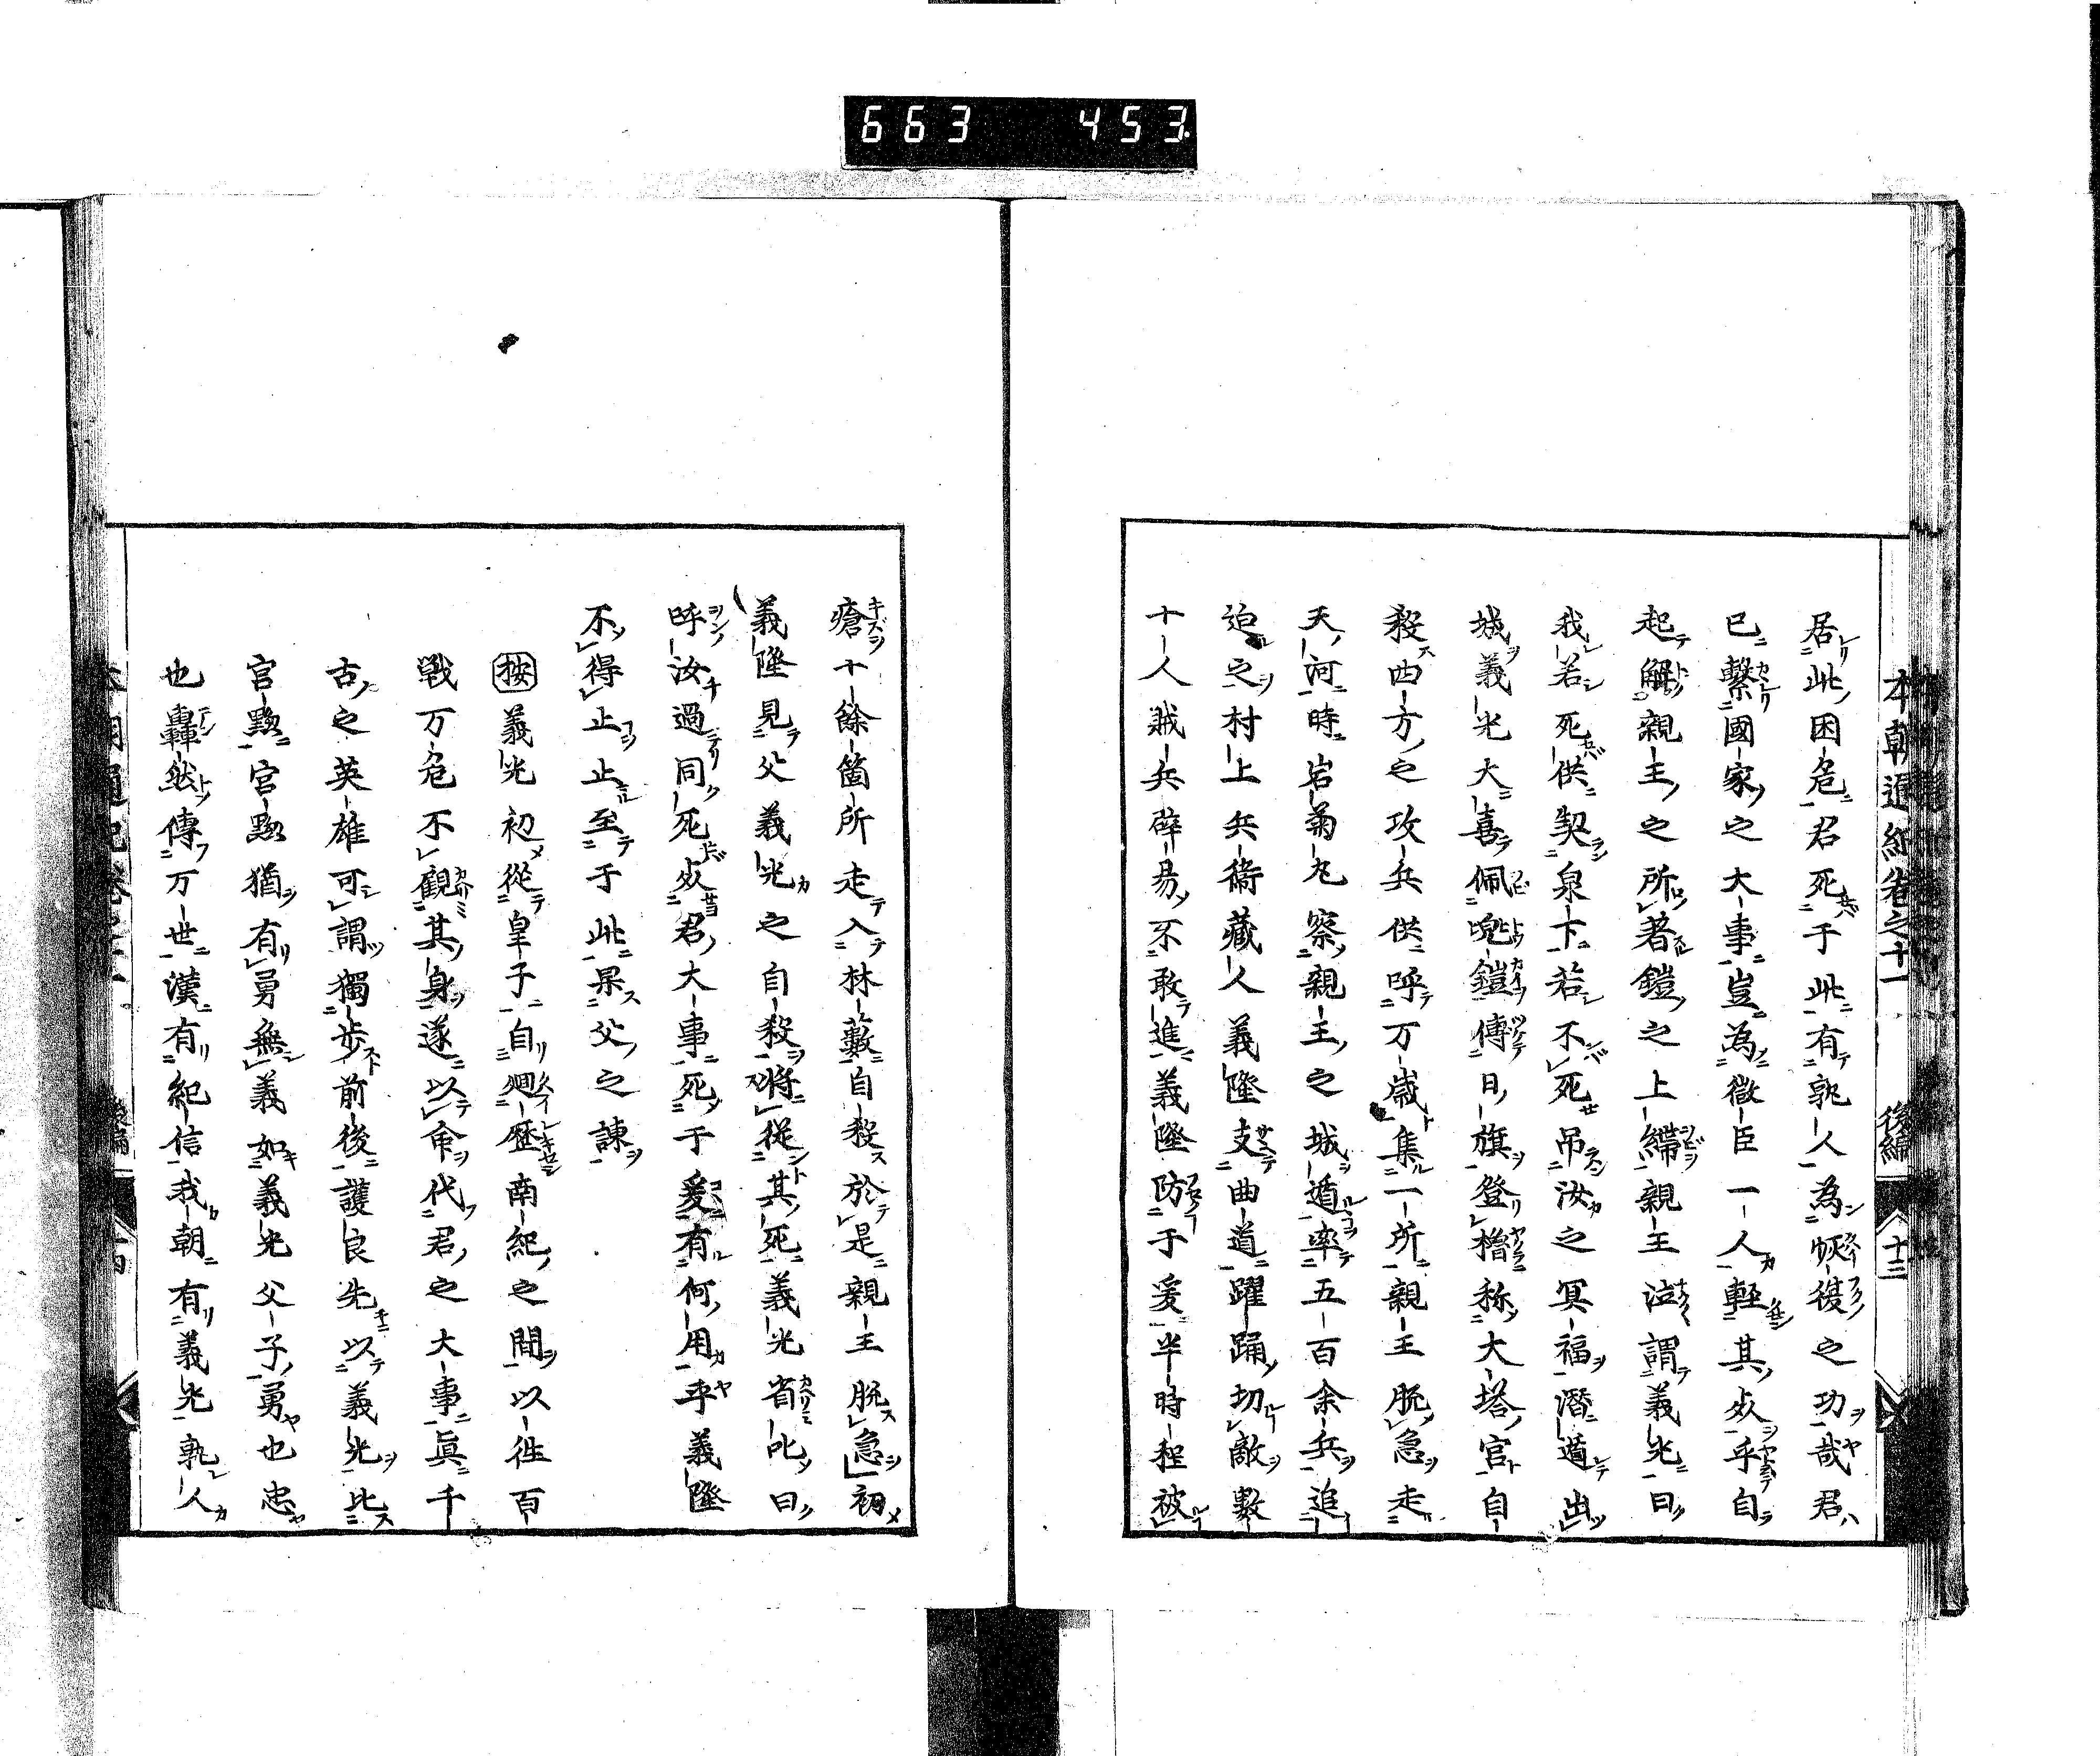 663 453
本朝通紀卷之十一 後編 十三
居此困危君死于此有孰人為恢復之功哉君
已繫國家之大事豈為微臣一人輕其処乎自
起解親王之所著鎧之上繻親王泣謂義光曰
我若死供契泉下若不死吊汝之冥福潛遁出
城義光大喜佩兜鎧傳日旗登櫓称大塔宮自
殺西方之攻兵供呼万歲集一所親王脱急走
天河時岩菊丸察親王之城遁率五百余兵追
迫之村上兵衛藏人義隆支曲道躍踊切敵數
十人賊兵辟易不敢進義隆防于爰半時程被
瘡十餘箇所走入林藪自殺於是親王脱急初
義隆見父義光之自殺將從其死義光省叱曰
呼汝過同死処君大事死于爰有何用乎義隆
不得止止至于此杲父之諫
按義光初從皇子自廻歷南紀之間以徃百
戦万危不顧其身遂以命代君之大事眞千
古之英雄可謂獨歩前後護良先以義光比
宮黝宮黝猶有勇無義如義光父子勇也忠
也轟然傳万世漢有紀信我朝有義光孰人